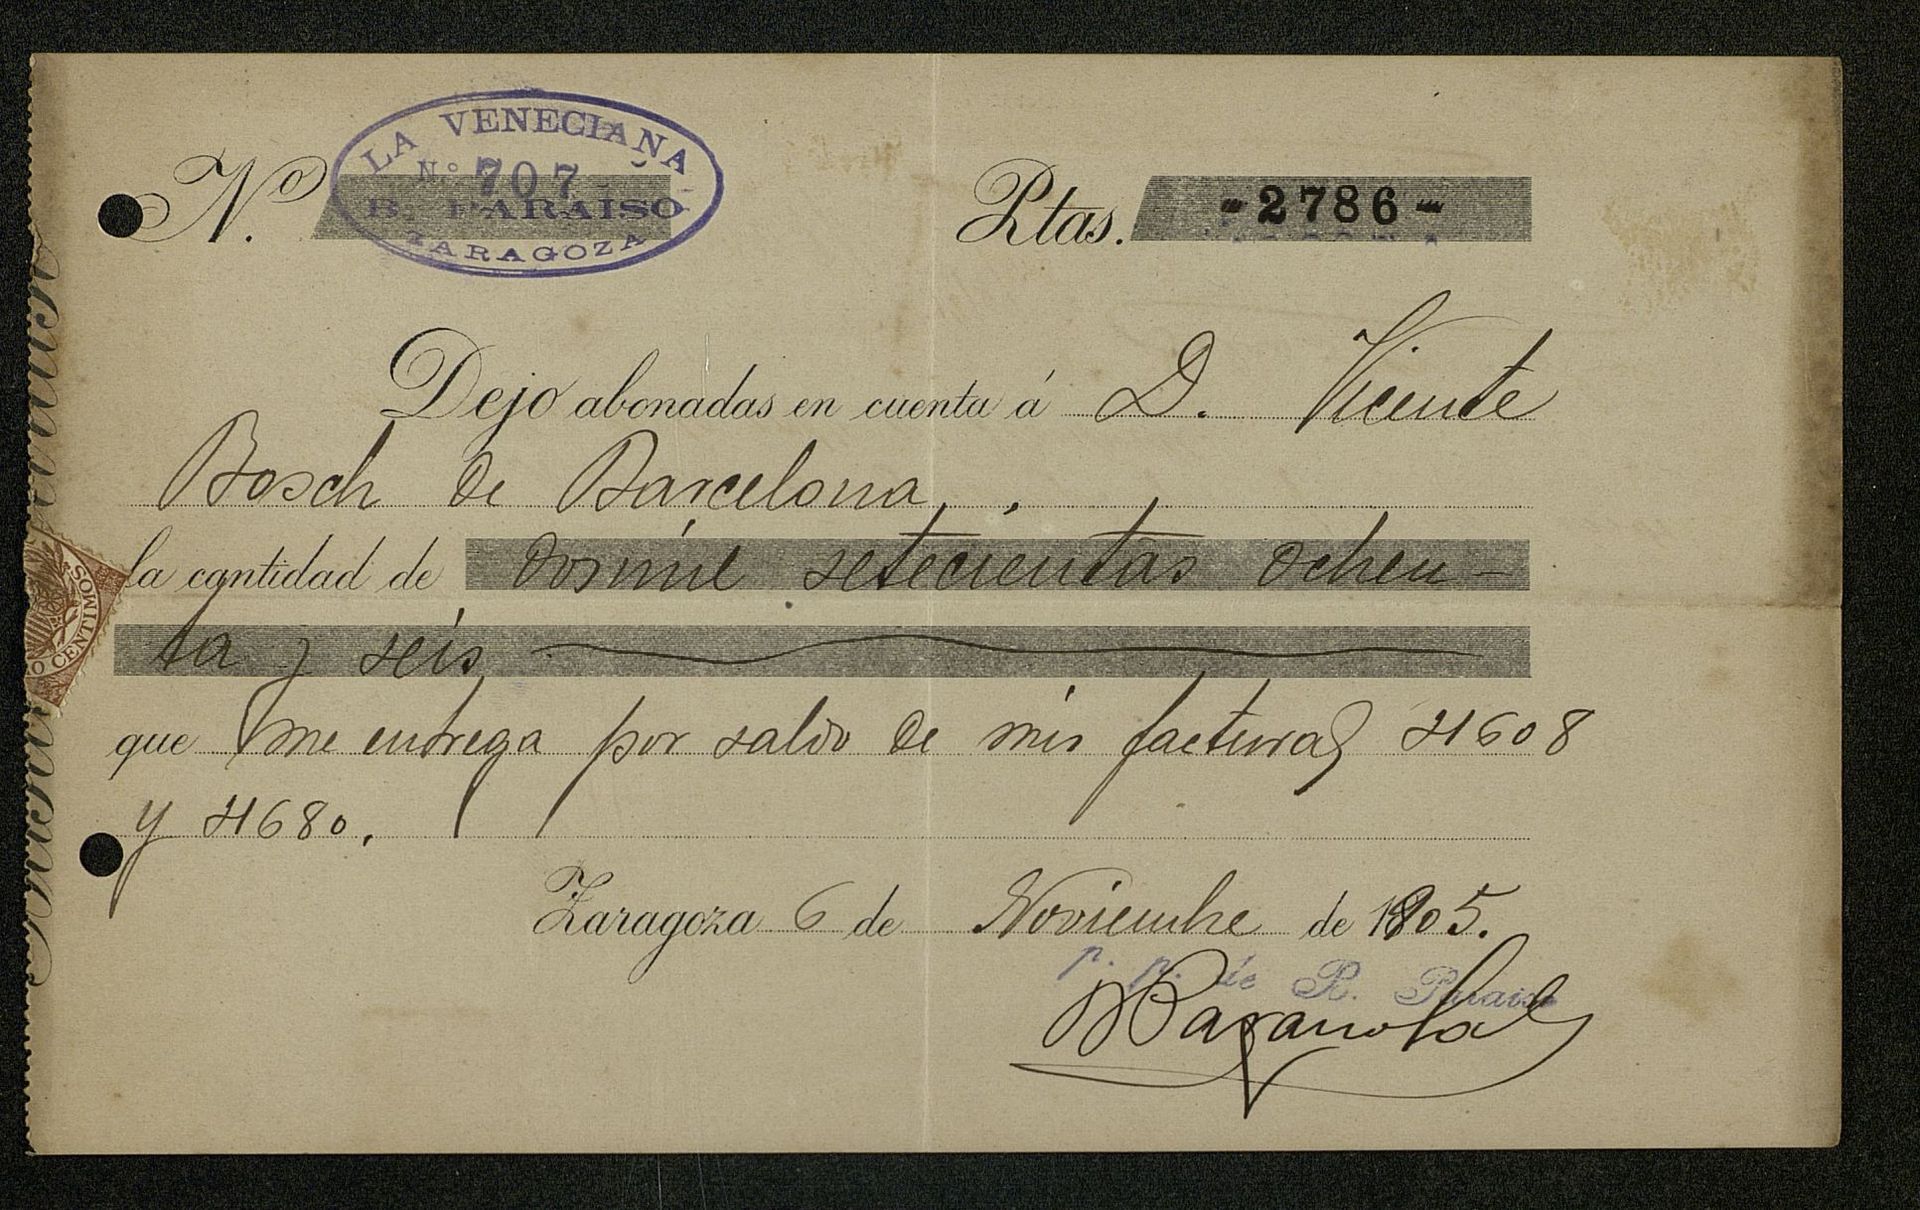 LA VENECIANA
Nº 707
B. PARAISO
ZARAGOZA
Nº
Ptas. -2786-
Dejo abonadas en cuenta á D. Vicente
Bosch de Barcelona
la cantidad de dosmil setecientas ochen-
ta y seis
que me entrega por saldo de mis facturas 41608
y 41680.
Zaragoza 6 de Noviembre de 1905.
p. p. de R. Paraiso
CENTIMOS